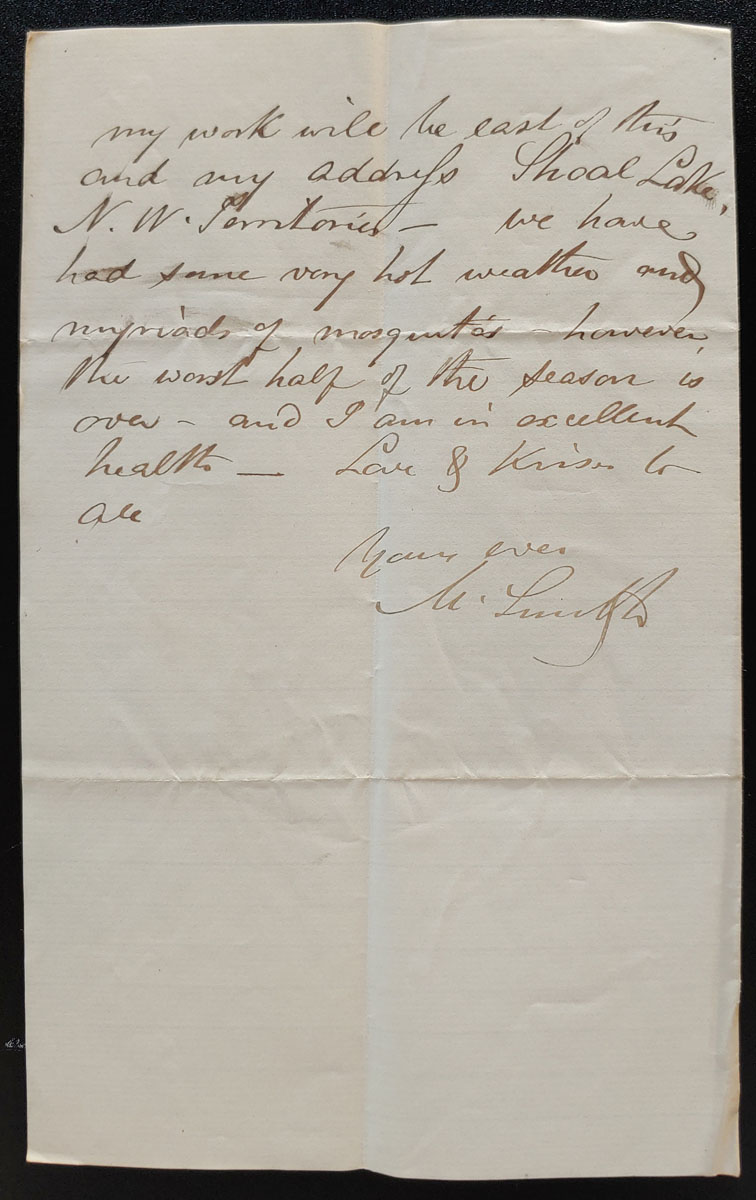 my work will be east of this
and my address Shoal Lake,
N. W. Territories – we have
had some very hot weather and
myriads of mosquitos – however,
the worst half of the season is
over – and I am in excellent
health — Love & Kisses to
all
Yours ever
M. Smith